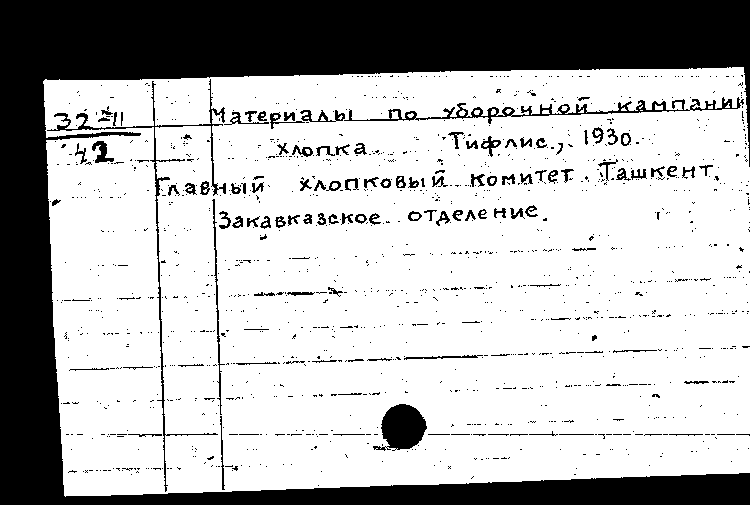 32-11
42
Материалы по уборочной кампании
хлопка. Тифлис, 1930.
Главный хлопковый комитет. Ташкент.
Закавказское отделение.